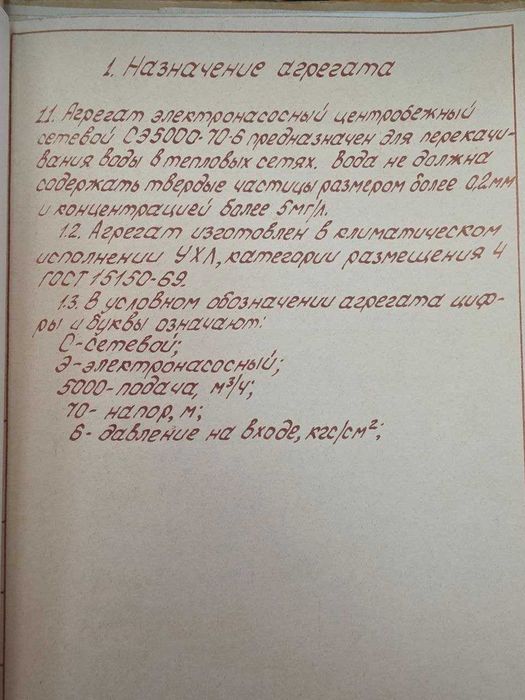 1. Назначение агрегата
1.1. Агрегат электронасосный центробежный
сетевой СЭ5000-70-6 предназначен для перекачи-
вания воды в тепловых сетях. Вода не должна
содержать твердые частицы размером более 0,2мм
и концентрацией более 5мг/л.
1.2. Агрегат изготовлен в климатическом
исполнении УХЛ, категории размещения 4
ГОСТ 15150-69.
1.3. В условном обозначении агрегата циф-
ры и буквы означают:
С-сетевой;
Э-электронасосный;
5000-подача, м³/ч;
70- напор, м;
6- давление на входе, кгс/см²;